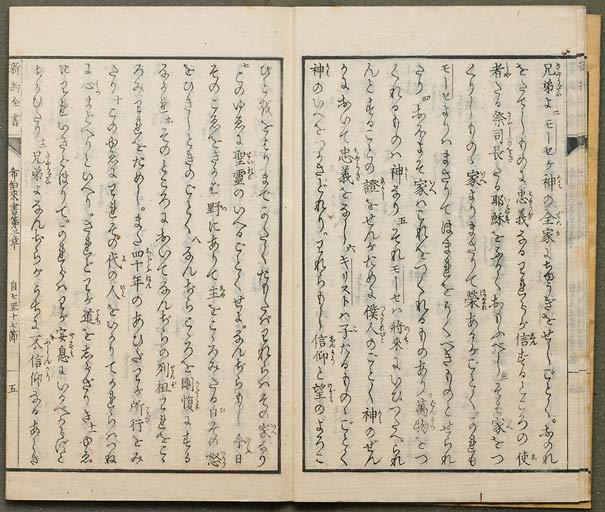 兄弟よ二モーセケ神の全家にちうぎをせしごとく。おのれ
をたてしものに忠義なるわれらが信ずるところの使
者たる祭司長たる耶穌をふかくおもふべし三そは家をつ
くりしものゝ家よりまさりて榮あるがごとく。かれも
モーセよりハまさりてほまれをうくべきものとせられ
たり四おほよそ家ハこれをつくれるものあり萬物をつ
くれるものハ神なり五それモーセハ將來にいひつたへられ
んとすることの證をせんがために僕人のごとく神のぜん
かにおいて忠義をなし六キリストハ子たるものゝごとく
神のいへをつかさどれり。われらもし信仰と望のよろこ
びとををはりまでかたくたもたバわれらハその家なり
七このゆゑに聖靈のいへるごとくせよ。なんぢらもし今日
そのこゑをきかバ野にありて主をこゝろみたる日その怒
をひきしときのごとく八なんぢらこゝろを剛愎にする
なかれ九そのところにおいてなんぢらの列祖われをこゝ
ろみわれをためし。また四十年のあひだわが所行をみ
たり十このゆゑにわれその代の人をいかりてかれらハつね
に心まよへりといへり。かれらわが道をしらざりき十一ゆゑ
にわれいきどほりて。かれらハわが安息にいるべからずと
ちかひたり十二兄弟よなんぢらがうちに不信仰なるあしき
新約全書 希伯來書第三章 自七至十七節 五